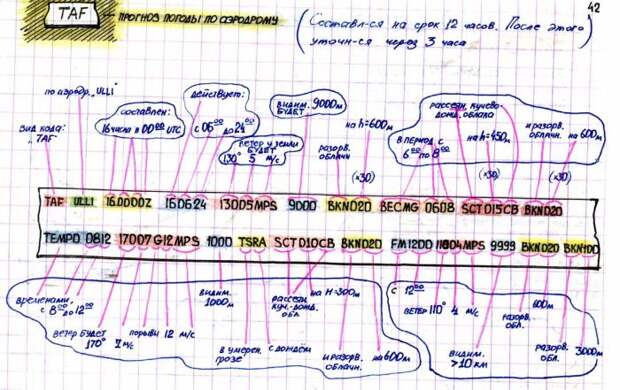 42
TAF - ПРОГНОЗ ПОГОДЫ ПО АЭРОДРОМУ
(Составл-ся на срок 12 часов. После этого
уточн-ся через 3 часа)
по аэродр. "ULLI"
вид кода:
"TAF"
составлен:
16 числа в 00⁰⁰ UTC
действует:
с 06⁰⁰
до 24⁰⁰
ветер у земли
БУДЕТ
130° 5 м/с
видим.
БУДЕТ 9000м
на h=600м
разорв.
облачн
(×30)
рассеян. кучево-
дожд. облака
в период с
6⁰⁰ по 8⁰⁰
на h=450м
(×30)
и разорв.
облачн. на 600м
(×30)
TAF ULLI 160000Z 160624 13005MPS 9000 BKN020 BECMG 0608 SCT015CB BKN020
TEMPO 0812 17007G12MPS 1000 TSRA SCT010CB BKN020 FM1200 11004MPS 9999 BKN020 BKN100
временами,
с 8⁰⁰ до 12⁰⁰
ветер будет
170° 7 м/с
порывы 12 м/с
видим.
1000м
в умерен.
грозе
с дождём
рассеян
куч.-дожд.
обл.
на H=300м
и разорв.
облачн.
на 600м
с 12⁰⁰
ветер 110° 4 м/с
видим.
>10 км
600м
разорв.
обл.
разорв.
обл.
3000м